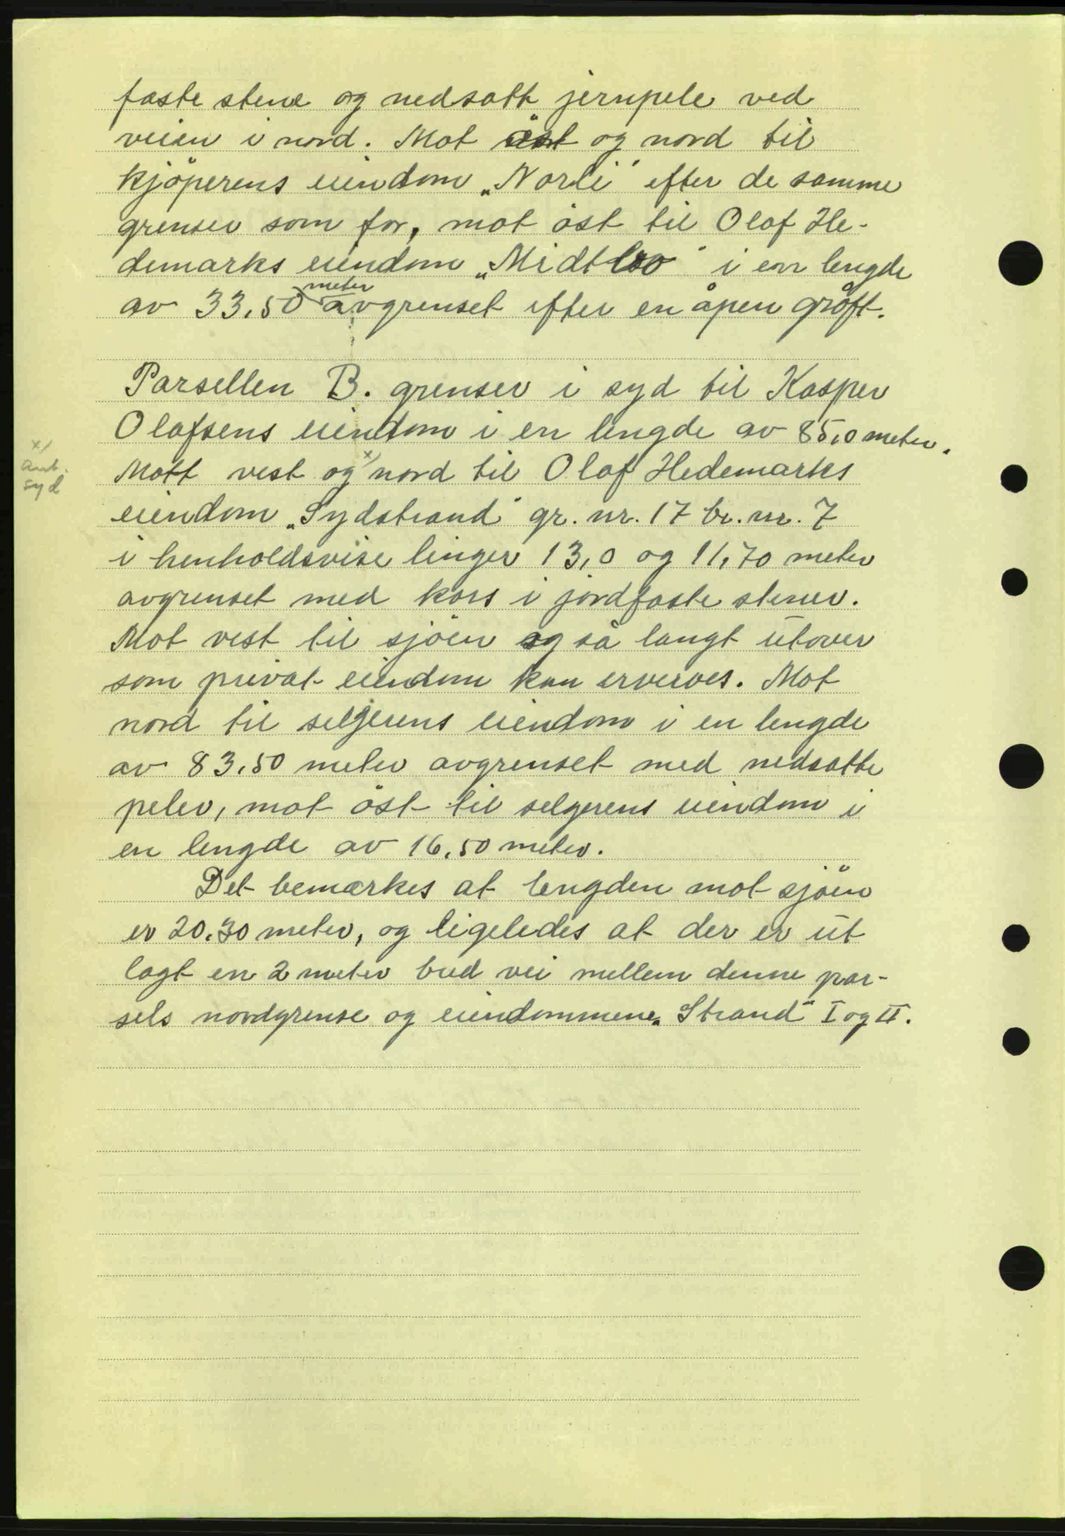 faste stene og nedsatt jernpele ved
veien i nord. Mot öst og nord til
kjöperens eiendom „Norli" efter de samme
grenser som for, mot öst til Olaf He-
demarks eiendom „Midtloo" i en lengde
av 33.50 meter avgrenset efter en åpen gröft.
Parsellen B. grenser i syd til Kasper
Olafsens eiendom i en lengde av 85,0 meter.
x/
ant.
syd
Mott vest og x/ nord til Olaf Hedemarks
eiendom „Sydstrand" gr. nr. 17 br. nr. 7
i henholdsvise linger 13,0 og 11,70 meter
avgrenset med kors i jordfaste stener.
Mot vest til sjöen og så langt utover
som privat eiendom kan erverves. Mot
nord til selgerens eiendom i en lengde
av 83.50 meter avgrenset med nedsatte
peler, mot öst til selgerens eiendom i
en lengde av 16,50 meter.
Det bemærkes at lengden mot sjöen
er 20.30 meter, og ligeledes at der er ut
lagt en 2 meter bred vei mellem denne par-
sels nordgrense og eiendommene „Strand" I og II.